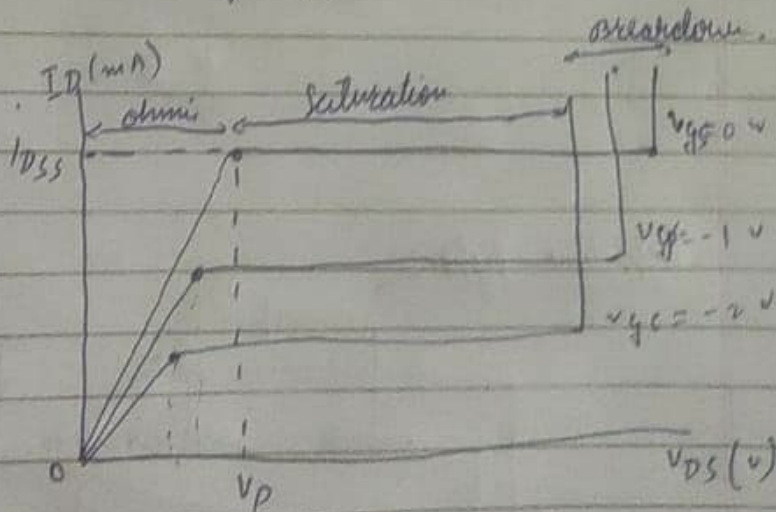 Breakdown.
ID (mA)
ohmic
Saturation
IDSS
Vgs=0 v
Vgs=-1 v
Vgs=-2 v
0
Vp
VDS (v)